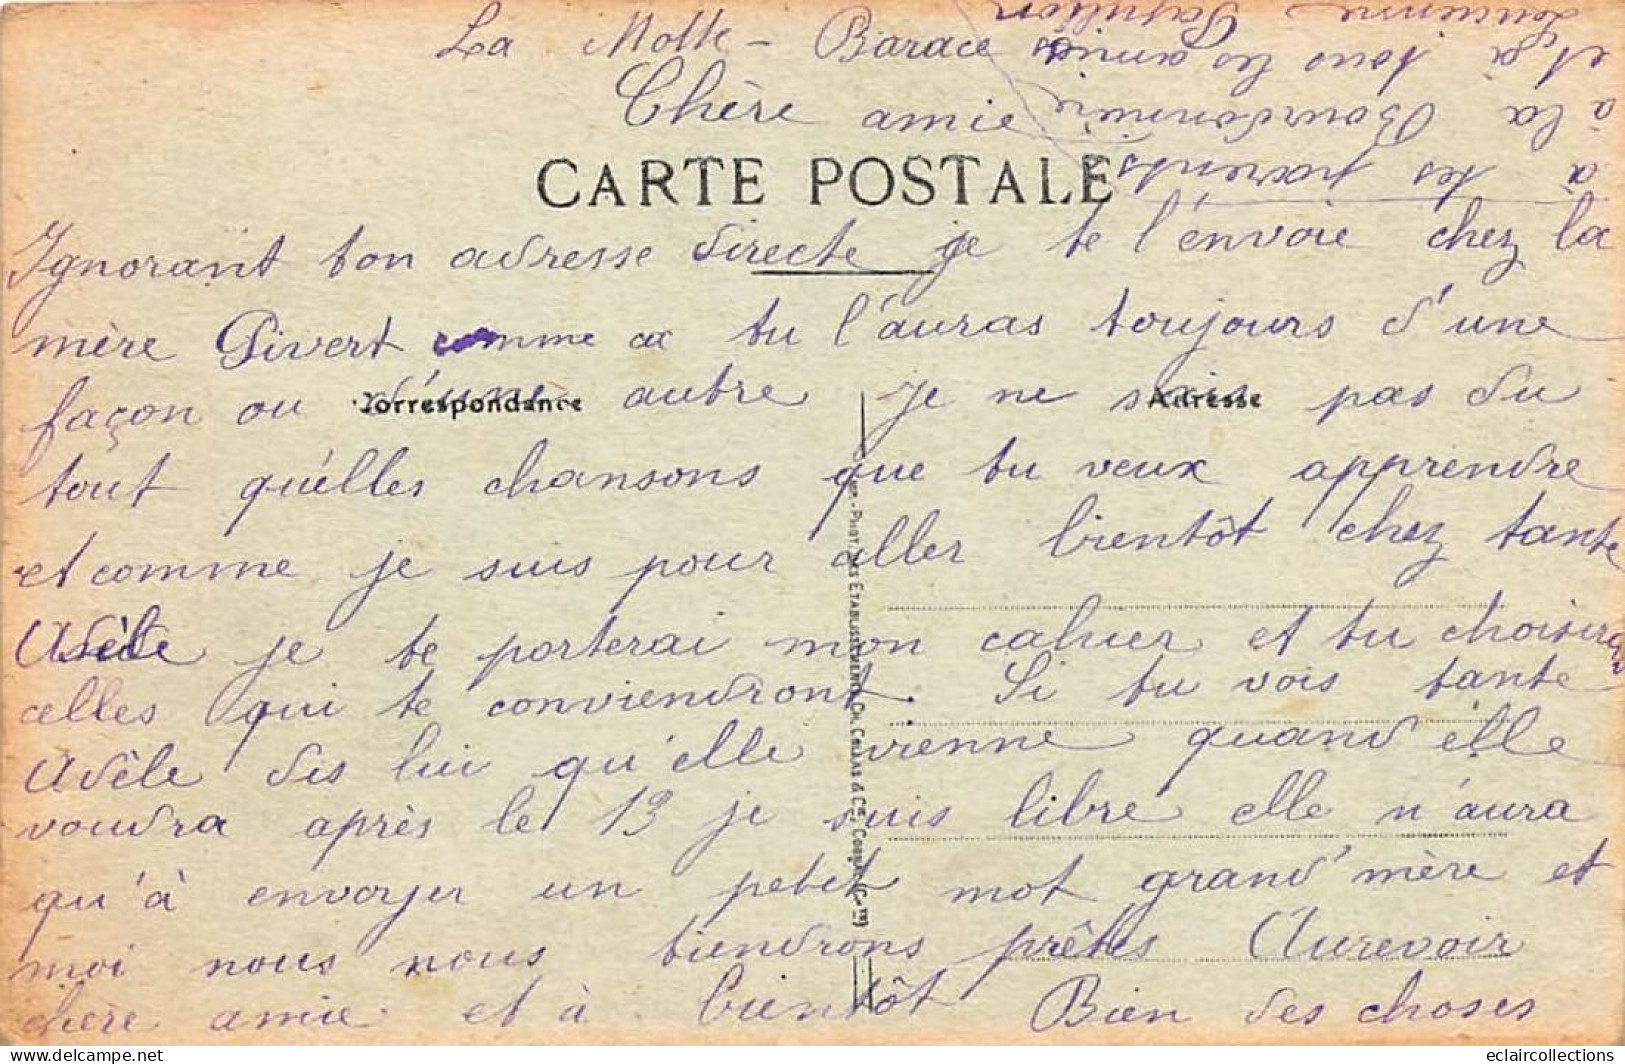 La Motte - Barace
Chère amie
CARTE POSTALE
Ignorant ton adresse directe je te l'envoie chez la
mère Pivert comme ça tu l'auras toujours d'une
façon ou d'une autre je ne sais pas du
Correspondance
Adresse
tout qu'elles chansons que tu veux apprendre
et comme je suis pour aller bientôt chez tante
Adèle je te porterai mon cahier et tu choisiras
celles qui te conviendront. Si tu vois tante
Adèle dis lui qu'elle vienne quand elle
voudra après le 13 je suis libre elle n'aura
qu'à envoyer un petit mot grand'mère et
moi nous nous tiendrons prêtes Aurevoir
chère amie et à bientôt Bien des choses
à tes parents
à la Bourdonnière
et à tous les amies
Lucienne Papillon
PHOT. DES ETABLISSEMENTS CH. COLLAS & Cie COGNAC (Cte)
eclaircollections